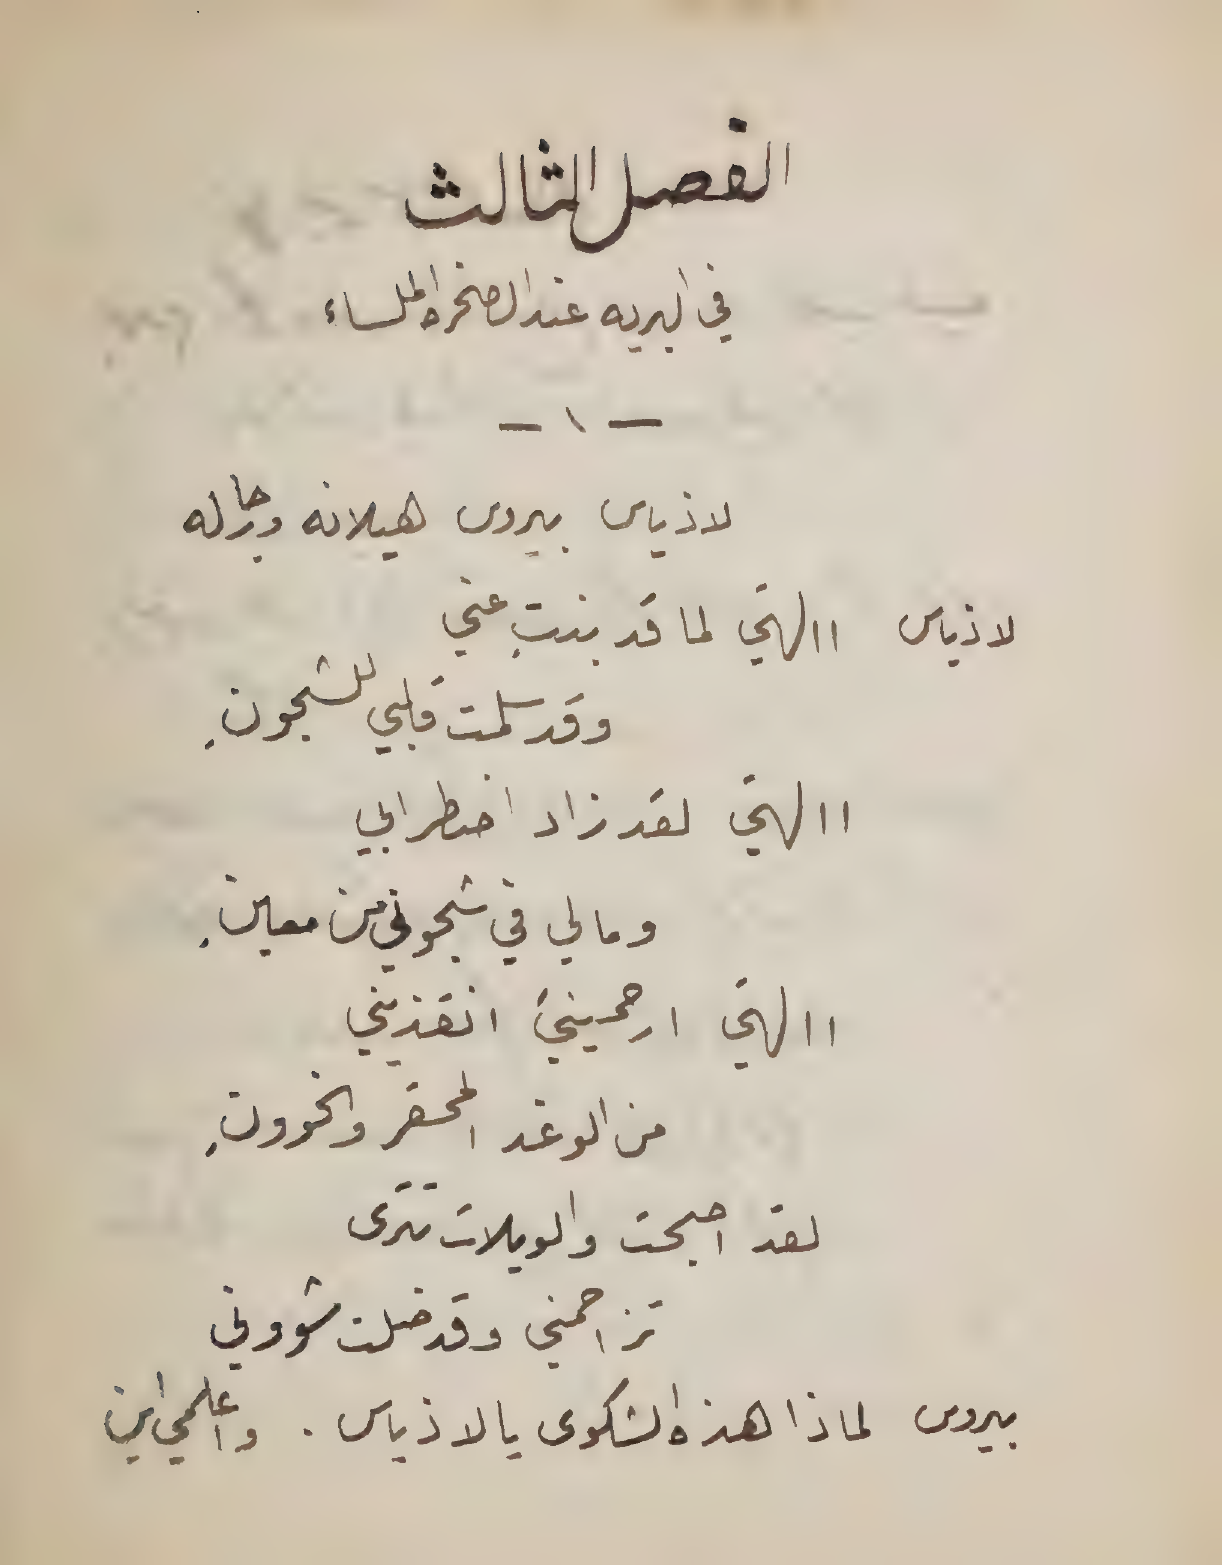 الفصل الثالث
في البريه عند الصخره الملساء
— ١ —
لاذياس بيروس هيلانه ورجاله
لاذياس االهتي لما قد بنتِ عني
وقد سلمت قلبي للشجونِ
االهتي لقد زاد اضطرابي
ومالي في شجوني من معينِ
االهتي ارحميني انقذيني
من الوغد المحقر والخوونِ
لقد اصبحت والويلات تترى
تزاحمني وقد ضلت شووني
بيروس لماذا هذه الشكوى يالاذياس . واعلمي اين